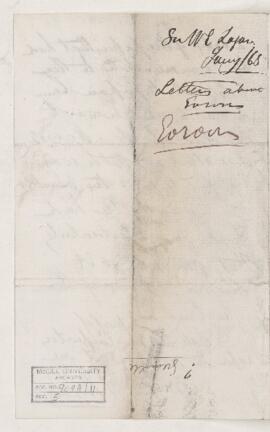 Sir W E Logan
Jany/65
Letters about
Eozoon
Eozoon
McGILL UNIVERSITY
ARCHIVES
ACC. NO.
REF. 5